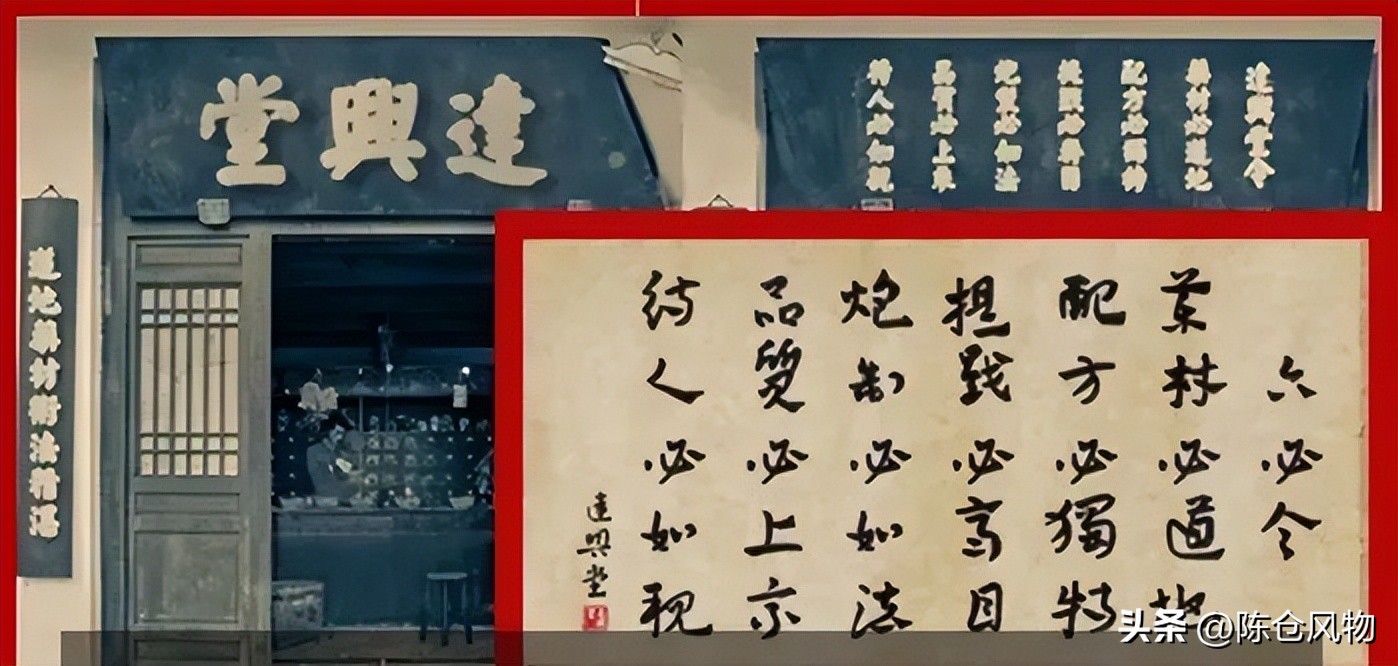 達興堂
道地藥材術法精湛
達興堂令
藥材必道地
配方必獨特
必
炮製必如法
品質必上乘
待人必如親
六必令
葯材必道地
配方必獨特
戥必目
炮制必如法
品質必上
待人必如親
達興堂
头条 @陈仓风物